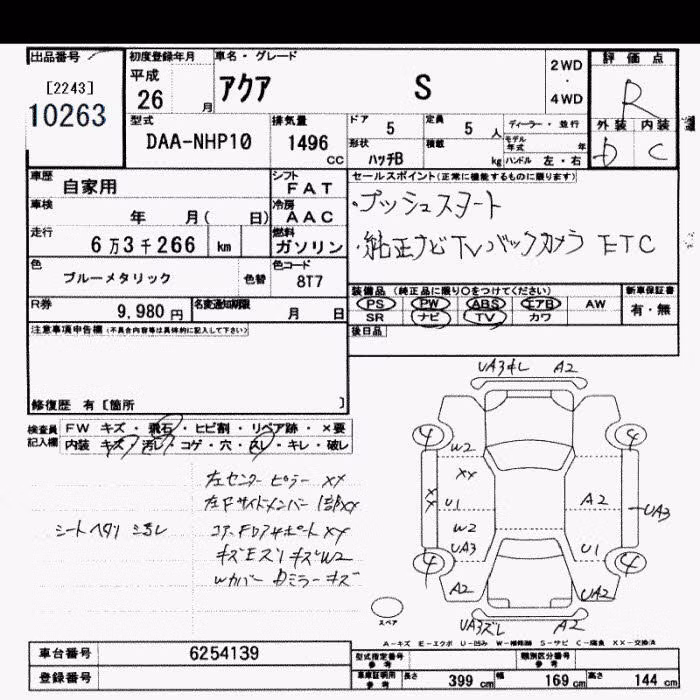 出品番号
[2243]
10263
初度登録年月
平成
26 月
車名・グレード
アクア S
2WD
・
4WD
評価点
R
外装 内装
D C
型式
DAA-NHP10
排気量
1496
CC
ドア 5
定員 5 人
ディーラー・並行
形状 ハッチB
積載 kg
モデル年式 年
ハンドル 左・右
車歴 自家用
シフト FAT
車検 年 月( 日)
冷房 AAC
走行 6万3千266 km
燃料 ガソリン
色 ブルーメタリック 色替
色コード 8T7
R券 9,980円
名変通知期限 月 日
セールスポイント(正常に機能するものに限ります)
・プッシュスタート
・純正ナビTVバックカメラ ETC
装備品 (純正品に限り○をつけてください)
新車保証書
PS PW ABS エアB AW
SR ナビ TV カワ
有・無
後日品
注意事項申告欄(不具合内容等は具体的に記入して下さい)
修復歴 有 [箇所 ]
検査員記入欄
FW キズ・飛石・ヒビ割・リペア跡・×要
内装 キズ・汚レ・コゲ・穴・スレ・キレ・破レ
左センターピラー XX
左Fサイドメンバー 1部XX
シートヘタリ
コアFDアサポートXX
キズW2
Wカバー Dミラーキズ
UA3キレ A2
4 4
W2
XX
XX U1 A2 UA3
W2
UA3 U1
4 4
A2 UA2
UA3ズレ A2
スペア
A-キズ E-エクボ U-凹み W-補修跡 S-サビ C-腐食 XX-交換済
車台番号 6254139
登録番号
型式指定番号
参考
類別区分番号
参考
車庫証明用
参考
長さ 399 cm
幅 169 cm
高さ 144 cm